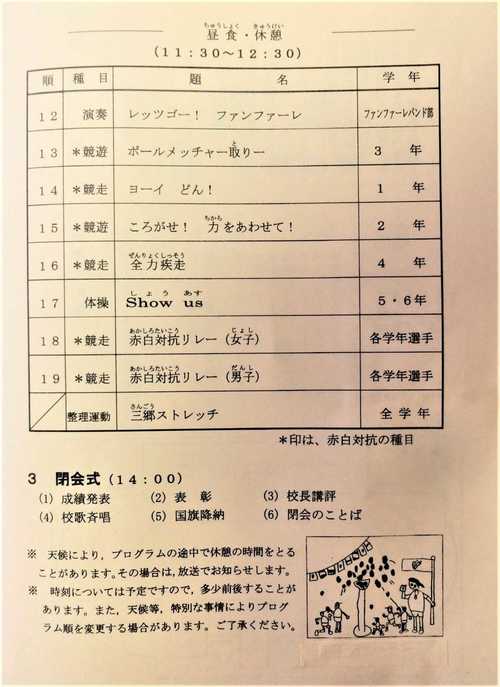 ちゅうしょく　きゅうけい
昼食・休憩
（11：30～12：30）
順 種目 題名 学年
12 演奏 レッツゴー！　ファンファーレ ファンファーレバンド部
13 ＊競遊 ボールメッチャー取りー 3年
と
14 ＊競走 ヨーイ　どん！ 1年
15 ＊競遊 ころがせ！　力をあわせて！ 2年
ちから
16 ＊競走 全力疾走 4年
ぜんりょくしっそう
17 体操 Show us 5・6年
しょう　あす
18 ＊競走 赤白対抗リレー（女子） 各学年選手
あかしろたいこう　じょし
19 ＊競走 赤白対抗リレー（男子） 各学年選手
あかしろたいこう　だんし
整理運動 三郷ストレッチ 全学年
さんごう
＊印は、赤白対抗の種目
3　閉会式（14：00）
(1) 成績発表　(2) 表彰　(3) 校長講評
(4) 校歌斉唱　(5) 国旗降納　(6) 閉会のことば
※　天候により，プログラムの途中で休憩の時間をとる
ことがあります。その場合は，放送でお知らせします。
※　時刻については予定ですので，多少前後することが
あります。また，天候等，特別な事情によりプログ
ラム順を変更する場合があります。ご了承ください。